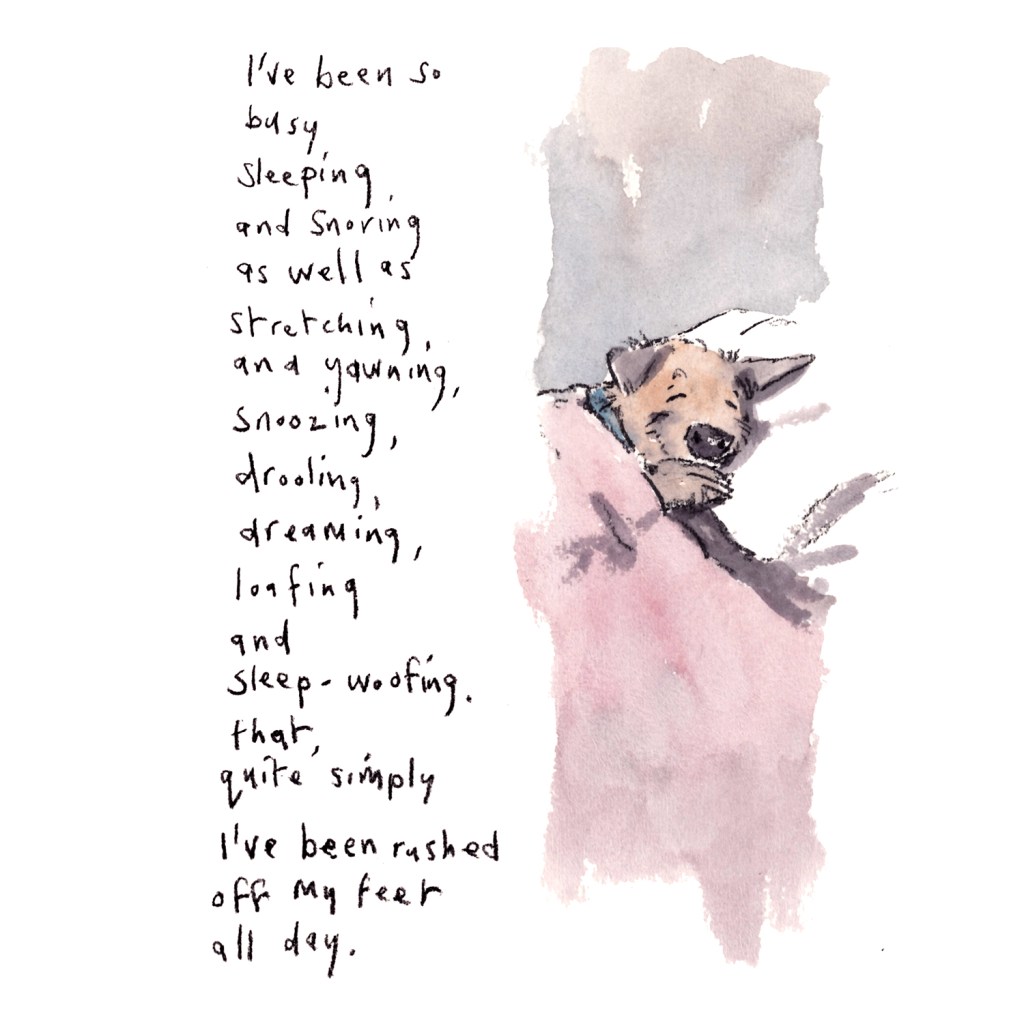 I've been so
busy
sleeping,
and snoring
as well as
stretching,
and yawning,
snoozing,
drooling,
dreaming,
loafing
and
sleep-woofing.
that,
quite simply
I've been rushed
off my feet
all day.